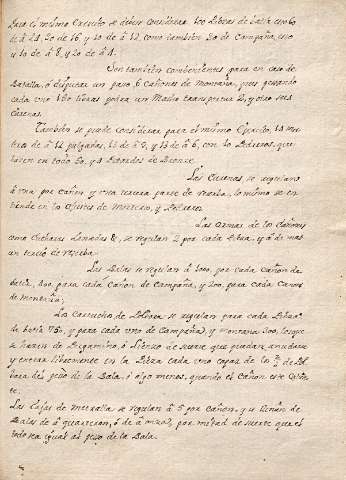 Para el mismo Exercito se deben considerar 100 Piezas de batir, 60
de â 24, 20 de 16, y 20 de â 12, como tambien 50 de Campaña,
y 10 de â 8, y 20 de â 4.
Son tambien combenientes para en caso de
Batalla, ô disputar un paso 6 Cañones de Montaña, pues pesando
cada uno 150 libras podra un Macho transportar 2, y otro sus
Curenas.
Tambien se puede considerar para el mismo Exercito, 15
de â 12 pulgadas, 15 de â 8, y 15 de â 6, con 10 Pedreros, que
hacen en todo 50, y 4 Petardos de Bronze.
Las Curenas, se regulan
â una por cañon, y una tercera parte de reserba, lo mismo se en
tiende en los Afustes de Mortero, y Pedrero.
Las armas de los Cañones
como Cucharas Lanadas &, se regulan 2 por cada Pieza, y â de mas
un tercio de reserba.
Las Balas se regulan â 1000, por cada Cañon de
batir, 400, para cada Cañon de Campaña, y 200, para cada
de Montaña;
Los Cartuchos de Polbora se regulan para cada
de batir 750, y para cada uno de Campaña, y Montaña 300, los que
se haran de Pergamino, ô Lienzo de suerte que puedan
y entrar libremente en la Pieza cada uno capaz de los 2/3 de
bora del peso de la Bala, ô algo menos, quando el Cañon este
te.
Las Cajas de Metralla se regulan â 5 por cañon, y se
Balas de â quarteron, ô de â onza, por mitad de suerte que el
todo sea igual al peso de la Bala.